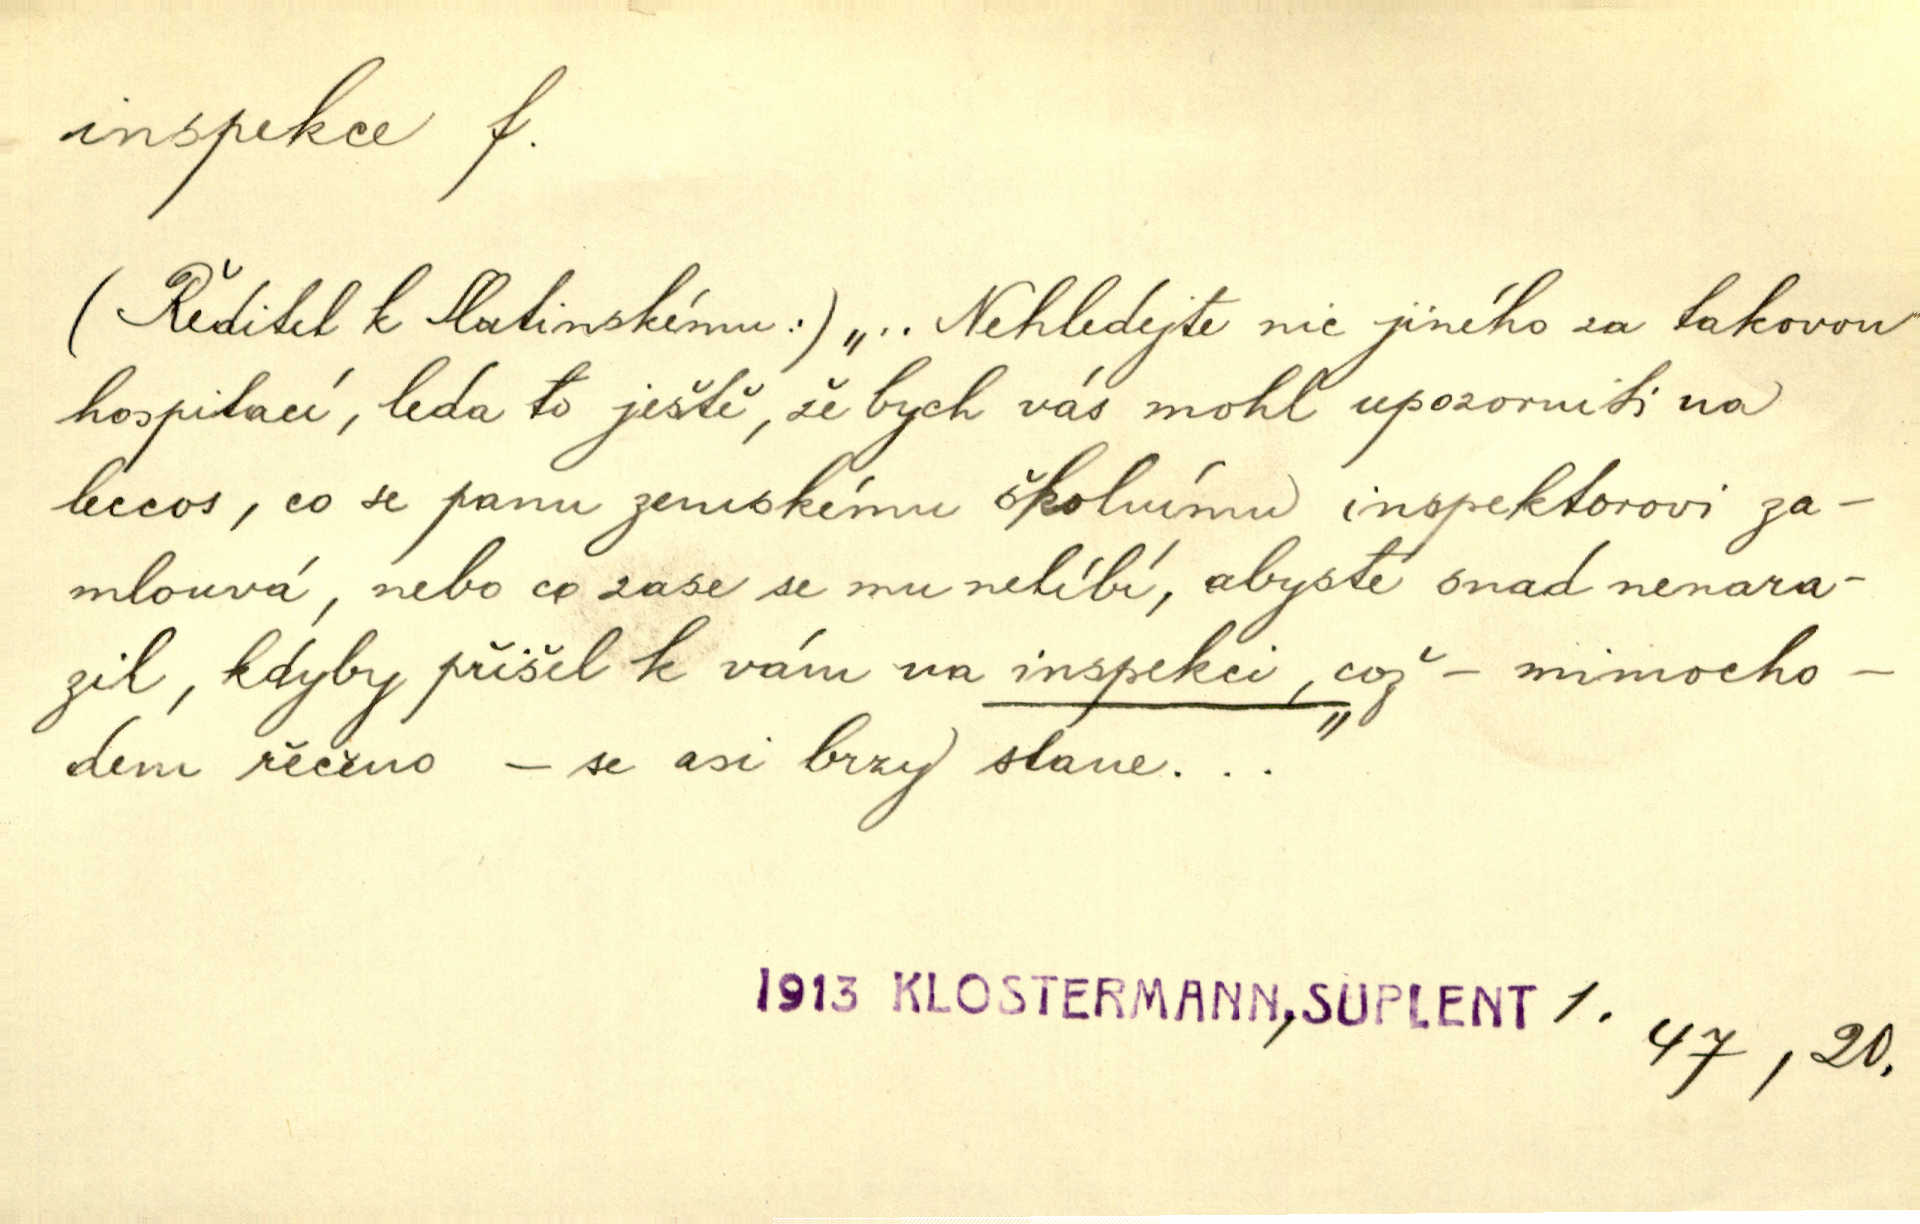 inspekce f.
(Ředitel k Matinskému:) „.. Nehledejte nic jiného za takovou
hospitací, leda to ještě, že bych vás mohl upozorniti na
leccos, co se panu zemskému školnímu inspektorovi za-
mlouvá, nebo co zase se mu nelíbí, abyste snad nenara-
zil, kdyby přišel k vám na inspekci, což - mimocho-
dem řečeno - se asi brzy stane...“
1913 KLOSTERMANN, SUPLENT 1.
47, 20.